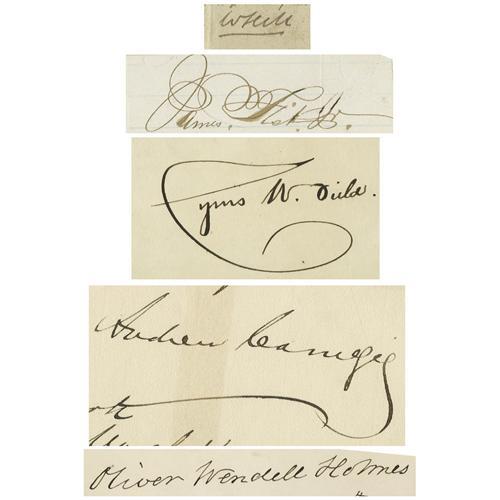 James Fisk Jr.
Cyrus W. Field.
Andrew Carnegie
Oliver Wendell Holmes